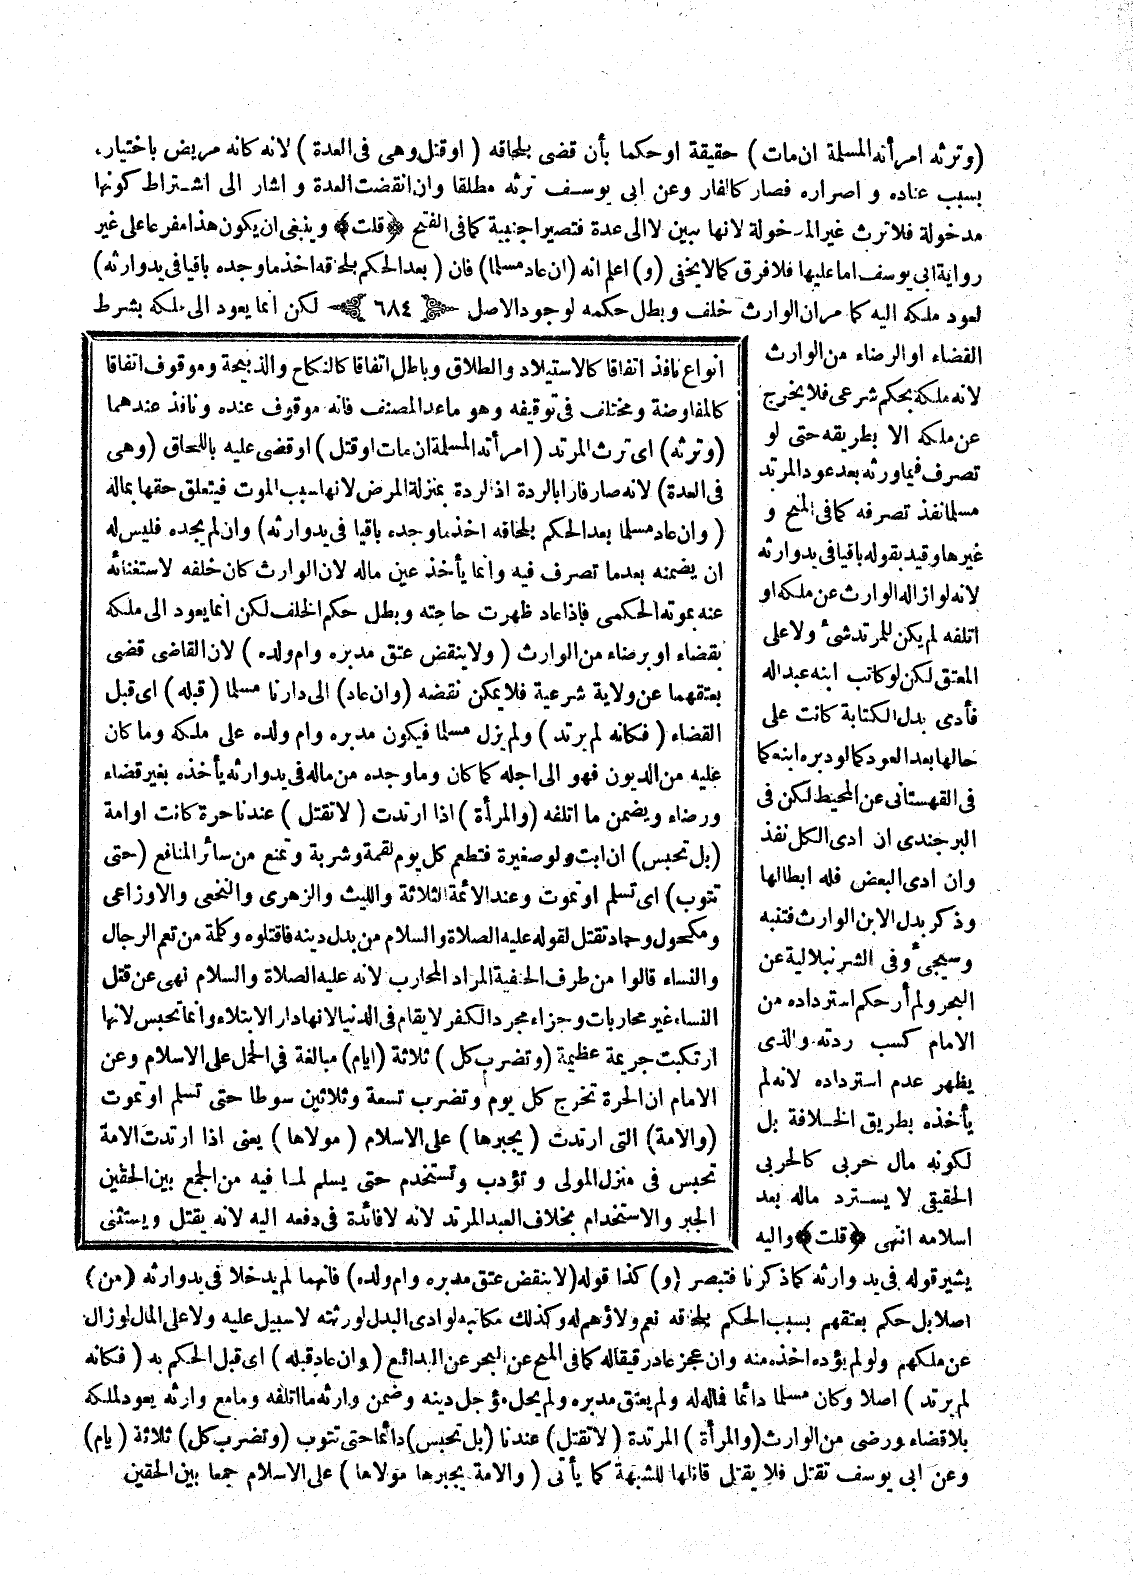 (وترثه امرأته المسلمة ان مات) حقيقة او حكما بأن قضى بلحاقه (اوقتل وهى فى العدة) لانه كانه مريض باختيار.
بسبب عناده و اصراره فصار كالفار وعن ابى يوسف ترثه مطلقا وان انقضت العدة و اشار الى اشتراط كونها
مدخولة فلا ترث غير المدخولة لانها تبين لا الى عدة فتصير اجنبية كما فى الفتح ﴿قلت﴾ وينبغى ان يكون هذا مفرعا على غير
رواية ابى يوسف اما عليها فلا فرق كما لا يخفى (و) اعلم انه (ان عاد مسلما) فان (بعد الحكم بلحاقه اخذ ما وجده باقيا فى يد وارثه)
لعود ملكه اليه كما مر ان الوارث خلف وبطل حكمه لوجود الاصل ٦٨٤ لكن انما يعود الى ملكه بشرط
القضاء او الرضاء من الوارث
لانه ملكه بحكم شرعى فلا يخرج
عن ملكه الا بطريقه حتى لو
تصرف فيما ورثه بعد عود المرتد
مسلما نفذ تصرفه كما فى المنح و
غيرها وقيد بقوله باقيا فى يد وارثه
لانه لو ازاله الوارث عن ملكه او
اتلفه لم يكن للمرتد شئ ولا على
المعتق لكن لو كاتب ابنه عبداله
فأدى بدل الكتابة كانت على
حالها بعد العود كما لو دبره ابنه كما
فى القهستانى عن المحيط لكن فى
البرجندى ان ادى الكل نفذ
وان ادى البعض فله ابطالها
وذكر بدل الابن الوارث فتنبه
وسيجئ وفى الشرنبلالية عن
البحر ولم أر حكم استرداده من
الامام كسب ردته والذى
يظهر عدم استرداده لانه لم
يأخذه بطريق الخلافة بل
لكونه مال حربى كالحربى
الحقيقى لا يسترد ماله بعد
اسلامه انتهى ﴿قلت﴾ واليه
يشير قوله فى يد وارثه كما ذكرنا فتبصر (و) كذا قوله (لا ينقض عتق مدبره وام ولده) فانهما لم يدخلا فى يد وارثه (من)
اصلا بل حكم بعتقهم بسبب الحكم بلحاقه نعم ولاؤهم له وكذلك مكاتبه لو ادى البدل لورثته لا سبيل عليه ولا على المال لوزال
عن ملكهم ولو لم يؤده اخذه منه وان عجز عاد رقيقا له كما فى المنح عن البحر عن البدائع (وان عاد قبله) اى قبل الحكم به (فكانه
لم يرتد) اصلا وكان مسلما دائما فماله له ولم يعتق مدبره ولم يحل مؤجل دينه وضمن وارثه ما اتلفه ومامع وارثه يعود لملكه
بلا قضاء ورضى من الوارث (والمرأة) المرتدة (لا تقتل) عندنا (بل تحبس) دائما حتى تتوب (وتضرب كل) ثلاثة (يام)
وعن ابى يوسف تقتل فلا يقتل قاتلها للشبهة كما يأتى (والامة يجبرها مولاها) على الاسلام جمعا بين الحقين
انواع نافذ اتفاقا كالاستيلاد والطلاق وباطل اتفاقا كالنكاح والذبيحة وموقوف اتفاقا
كالمفاوضة ومختلف فى توقيفه وهو ماعد المصنف فانه موقوف عنده ونافذ عندهما
(وترثه) اى ترث المرتد (امرأته المسلمة ان مات اوقتل) او قضى عليه باللحاق (وهى
فى العدة) لانه صار فارا بالردة اذ الردة بمنزلة المرض لانها سبب الموت فيتعلق حقها بماله
(وان عاد مسلما بعد الحكم بلحاقه اخذ ما وجده باقيا فى يد وارثه) وان لم يجده فليس له
ان يضمنه بعدما تصرف فيه وانما يأخذ عين ماله لان الوارث كان خلفه لاستغنائه
عنه بموته الحكمى فاذا عاد ظهرت حاجته وبطل حكم الخلف لكن انما يعود الى ملكه
بقضاء او برضاء من الوارث (ولا ينقض عتق مدبره وام ولده) لان القاضى قضى
بعتقهما عن ولاية شرعية فلا يمكن نقضه (وان عاد) الى دارنا مسلما (قبله) اى قبل
القضاء (فكانه لم يرتد) ولم يزل مسلما فيكون مدبره وام ولده على ملكه وما كان
عليه من الديون فهو الى اجله كما كان وما وجده من ماله فى يد وارثه يأخذه بغير قضاء
ورضاء ويضمن ما اتلفه (والمرأة) اذا ارتدت (لا تقتل) عندنا حرة كانت او امة
(بل تحبس) ان ابت ولو صغيرة فتطعم كل يوم لقمة وشربة وتمنع من سائر المنافع (حتى
تتوب) اى تسلم او تموت وعند الائمة الثلاثة والليث والزهرى والنخعى والاوزاعى
ومكحول وحماد تقتل لقوله عليه الصلاة والسلام من بدل دينه فاقتلوه وكلمة من تعم الرجال
والنساء قالوا من طرف الحنفية المراد المحارب لانه عليه الصلاة والسلام نهى عن قتل
النساء غير محاربات وجزاء مجرد الكفر لا يقام فى الدنيا لانها دار الابتلاء وانما تحبس لانها
ارتكبت جريمة عظيمة (وتضرب كل) ثلاثة (ايام) مبالغة فى الحمل على الاسلام وعن
الامام ان الحرة تخرج كل يوم وتضرب تسعة وثلاثين سوطا حتى تسلم او تموت
(والامة) التى ارتدت (يجبرها) على الاسلام (مولاها) يعنى اذا ارتدت الامة
تحبس فى منزل المولى و تؤدب وتستخدم حتى يسلم لما فيه من الجمع بين الحقين
الجبر والاستخدام بخلاف العبد المرتد لانه لا فائدة فى دفعه اليه لانه يقتل ويستثنى